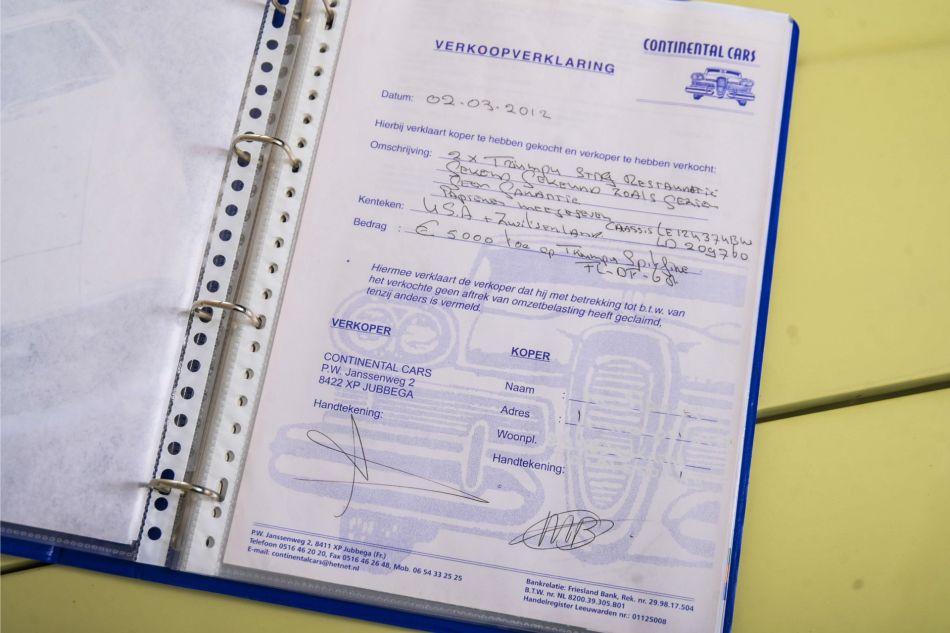 CONTINENTAL CARS
VERKOOPVERKLARING
Datum: 02.03.2012
Hierbij verklaart koper te hebben gekocht en verkoper te hebben verkocht:
Omschrijving: 2x Triumph Stag Restauratie
Gekeurd zoals gezien
Geen Garantie
Papieren meegegeven
Kenteken: U.S.A + Zwitserland Chassis LE124374BW
LD 209760
Bedrag : € 5000 toe op Triumph Spitfire
FL-OF-68
Hiermee verklaart de verkoper dat hij met betrekking tot b.t.w. van
het verkochte geen aftrek van omzetbelasting heeft geclaimd,
tenzij anders is vermeld.
VERKOPER
KOPER
CONTINENTAL CARS
P.W. Janssenweg 2
8422 XP JUBBEGA
Handtekening:
Naam :
Adres :
Woonpl. :
Handtekening:
P.W. Janssenweg 2, 8411 XP Jubbega (Fr.)
Telefoon 0516 46 20 20, Fax 0516 46 26 48, Mob. 06 54 33 25 25
E-mail: continentalcars@hetnet.nl
Bankrelatie: Friesland Bank, Rek. nr. 29.98.17.504
B.T.W. nr. NL 8200.39.305.B01
Handelregister Leeuwarden nr.: 01125008